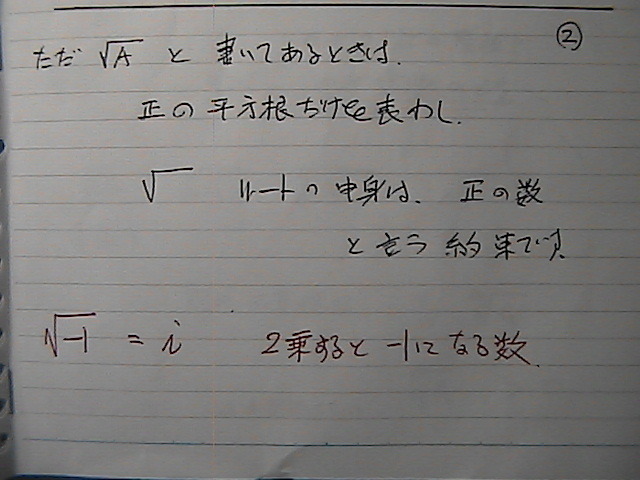 ②
ただ √A と 書いてあるときは、
正の平方根だけを表わし、
√ ルートの中身は、正の数
と言う約束です
√-1 = i 2乗すると -1になる数